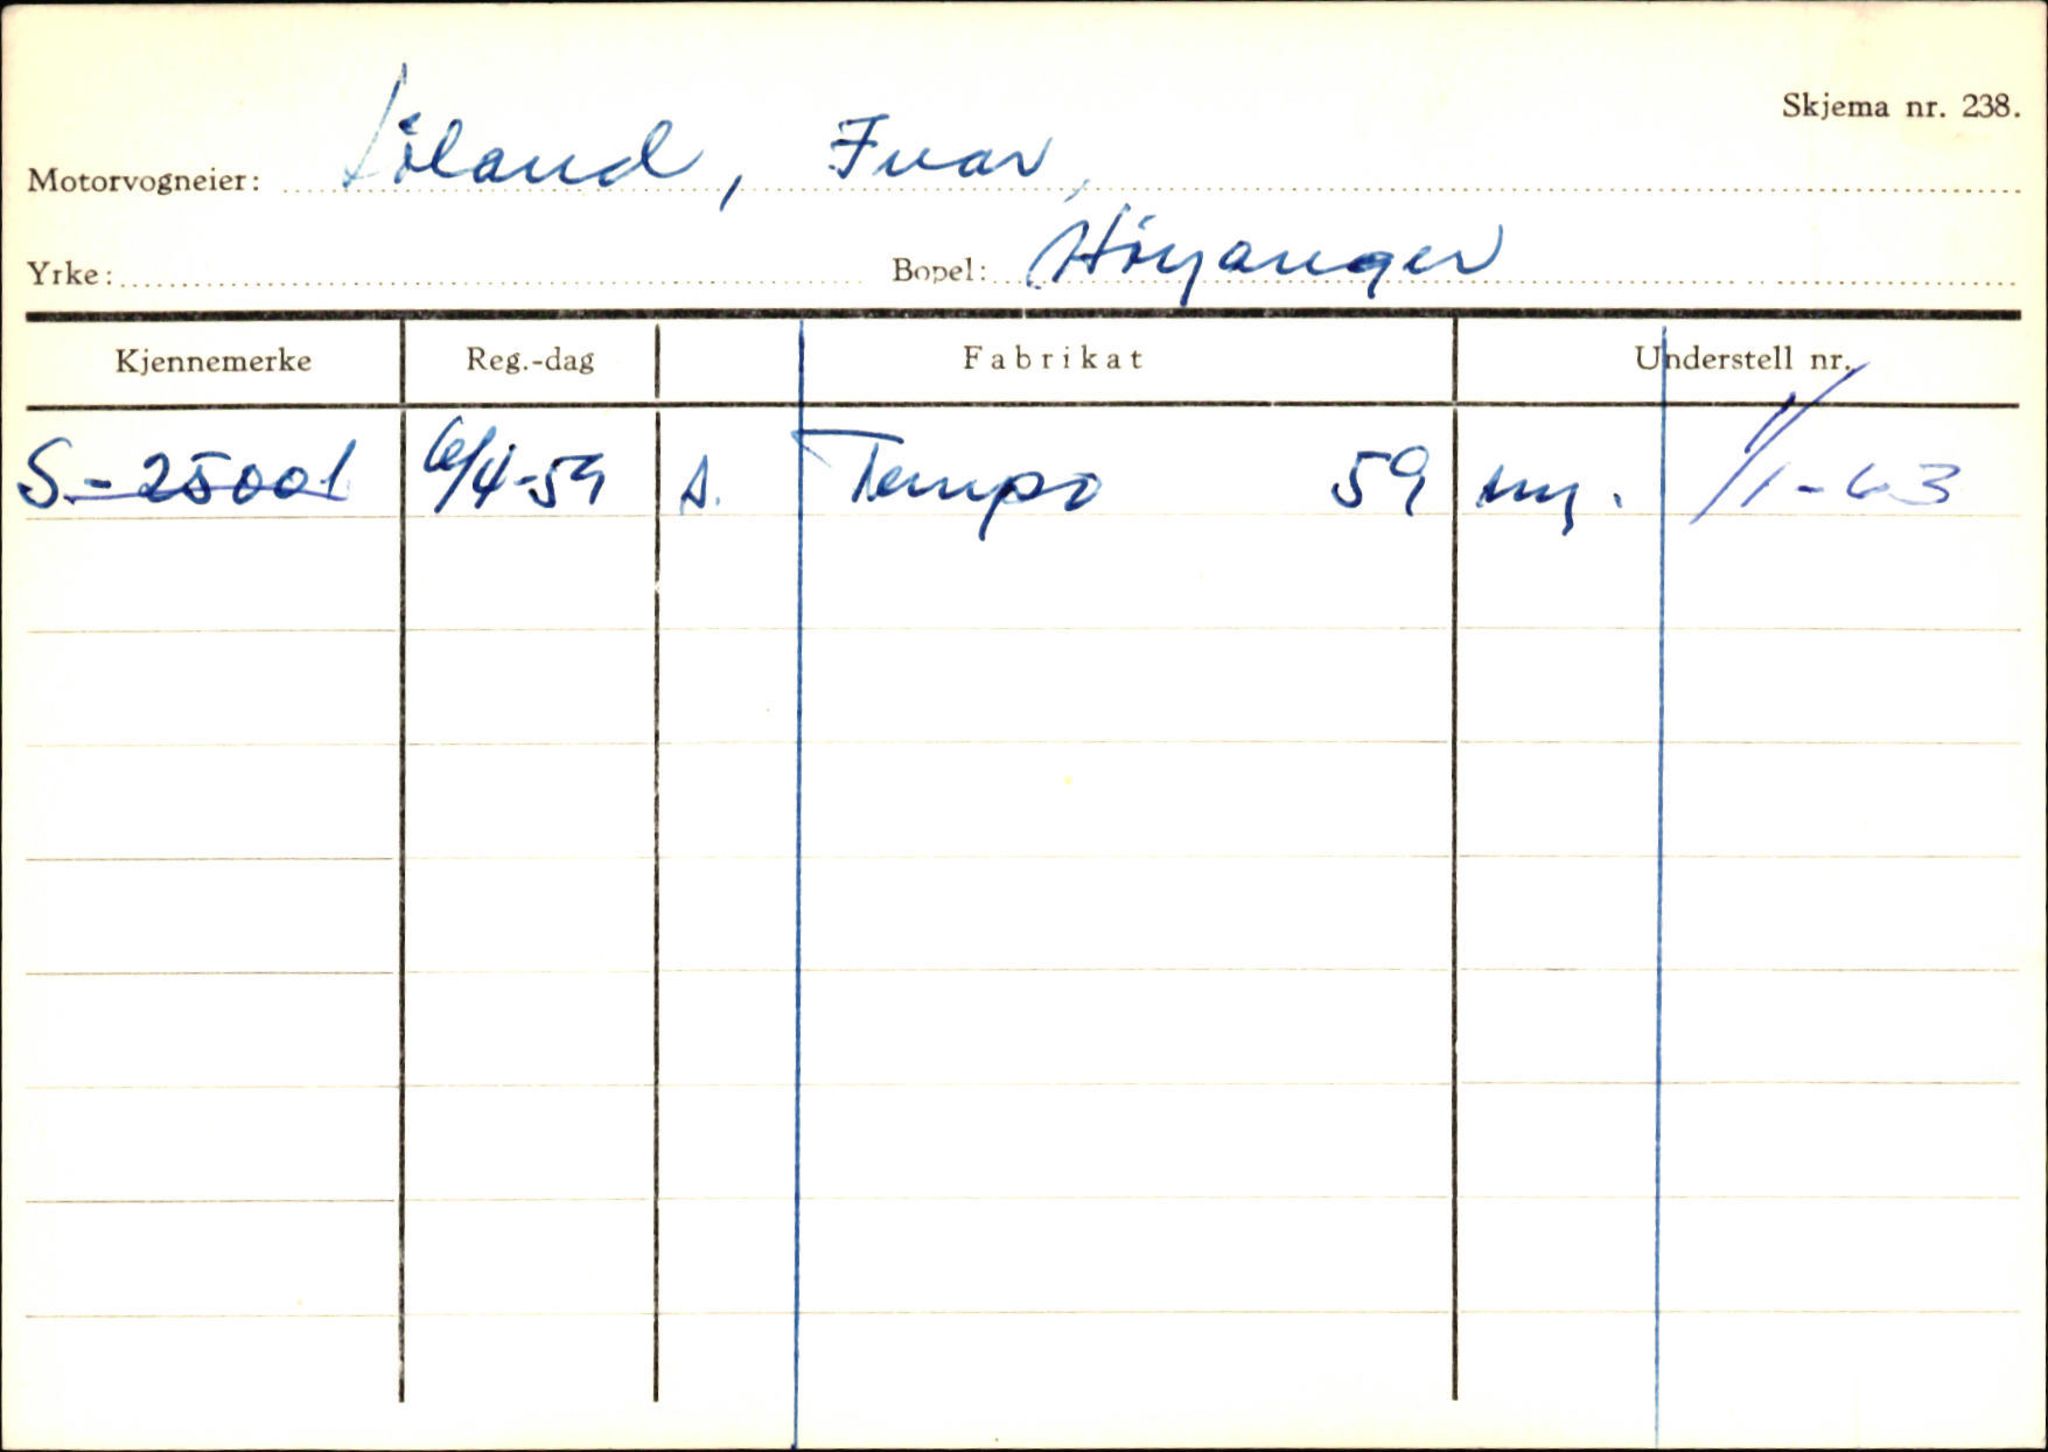 Skjema nr. 238.
Motorvogneier: Söland, Ivar,
Yrke: Bopel: Höyanger
Kjennemerke Reg.-dag Fabrikat Understell nr.
S-25001 6/4-59 A. Tempo 59 ny. 1/1-63